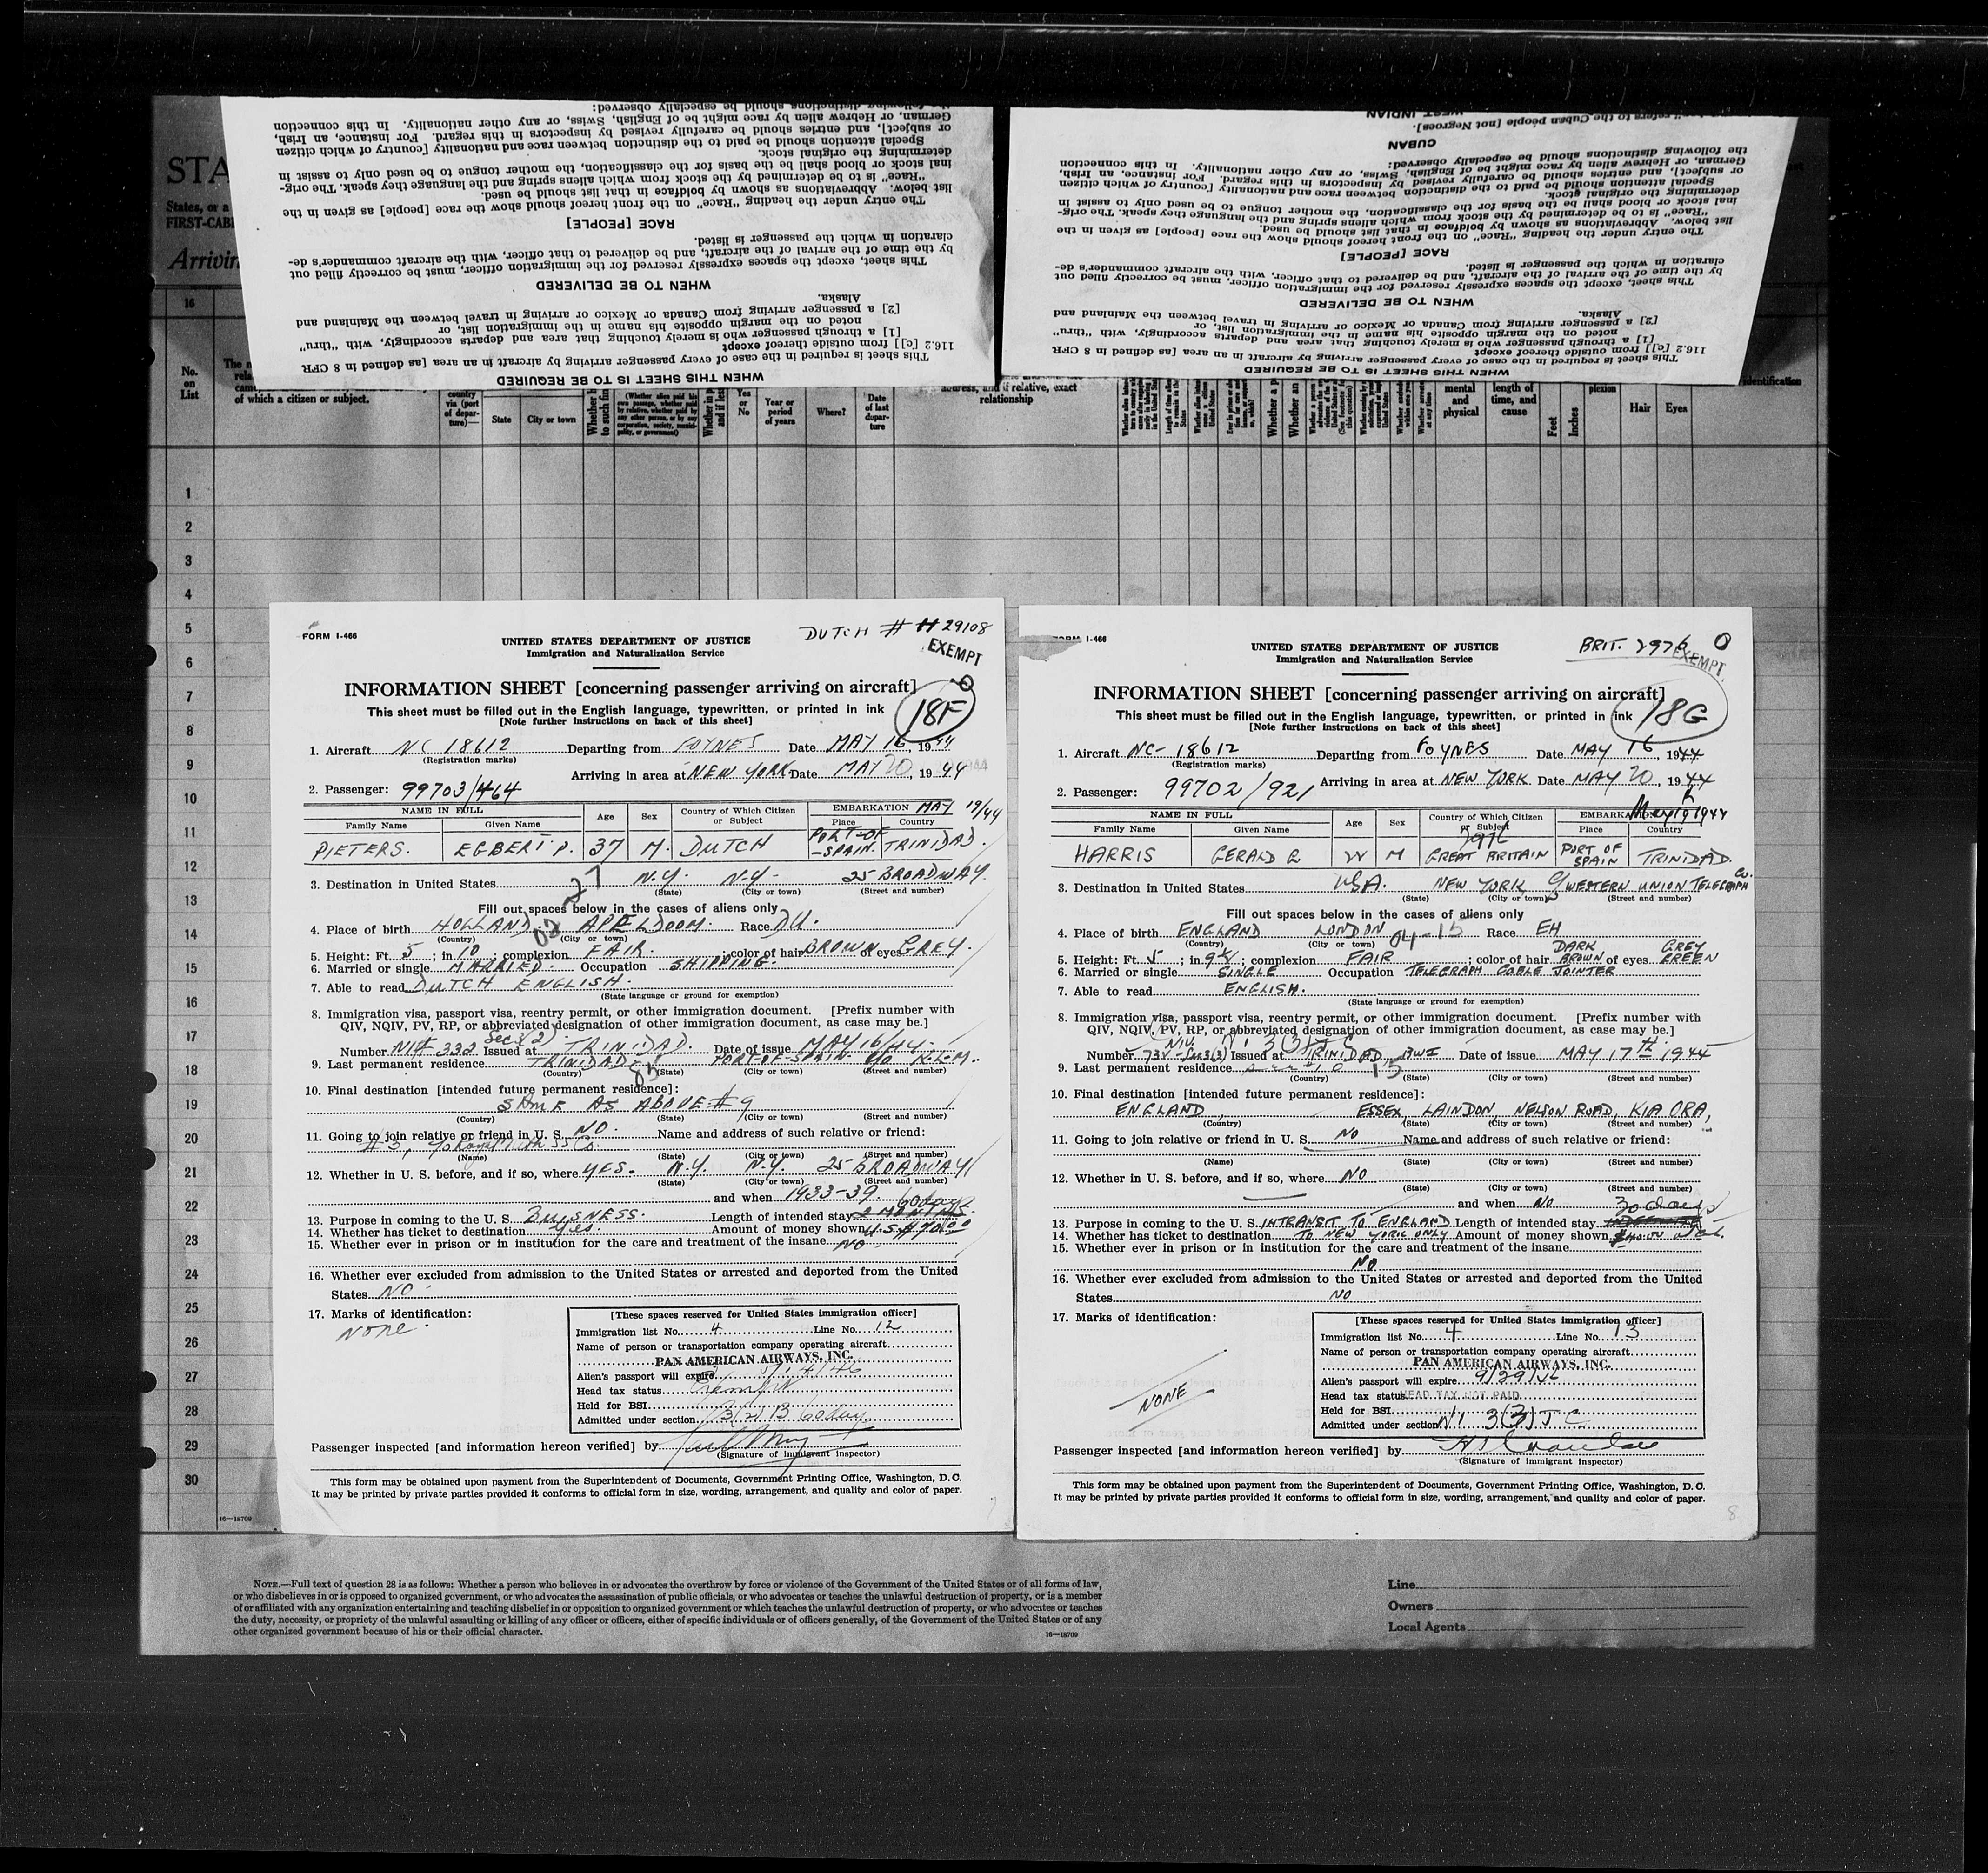 STA
States, or a
FIRST-CAB
Arrivin
WHEN THIS SHEET IS TO BE REQUIRED
This sheet is required in the case of every passenger arriving by aircraft in an area [as defined in 8 CFR
116.2 [c]] from outside thereof except
[1] a through passenger who is merely touching that area and departs accordingly, with "thru"
noted on the margin opposite his name in the immigration list, or
[2] a passenger arriving from Canada or Mexico or arriving in travel between the Mainland and
Alaska.
WHEN TO BE DELIVERED
This sheet, except the spaces expressly reserved for the immigration officer, must be correctly filled out
by the time of the arrival of the aircraft, and be delivered to that officer, with the aircraft commander's de-
claration in which the passenger is listed.
RACE [PEOPLE]
The entry under the heading "Race" on the front hereof should show the race [people] as given in the
list below. Abbreviations as shown by boldface in that list should be used.
"Race" is to be determined by the stock from which aliens spring and the language they speak. The orig-
inal stock or blood shall be the basis for the classification, the mother tongue to be used only to assist in
determining the original stock.
Special attention should be paid to the distinction between race and nationality [country of which citizen
or subject], and entries should be carefully revised by inspectors in this regard. For instance, an Irish,
German, or Hebrew alien by race might be of English, Swiss, or any other nationality. In this connection
the following distinctions should be especially observed:
WHEN THIS SHEET IS TO BE REQUIRED
This sheet is required in the case of every passenger arriving by aircraft in an area [as defined in 8 CFR
116.2 [c]] from outside thereof except
[1] a through passenger who is merely touching that area and departs accordingly, with "thru"
noted on the margin opposite his name in the immigration list, or
[2] a passenger arriving from Canada or Mexico or arriving in travel between the Mainland and
Alaska.
WHEN TO BE DELIVERED
This sheet, except the spaces expressly reserved for the immigration officer, must be correctly filled out
by the time of the arrival of the aircraft, and be delivered to that officer, with the aircraft commander's de-
claration in which the passenger is listed.
RACE [PEOPLE]
The entry under the heading "Race" on the front hereof should show the race [people] as given in the
list below. Abbreviations as shown by boldface in that list should be used.
"Race" is to be determined by the stock from which aliens spring and the language they speak. The orig-
inal stock or blood shall be the basis for the classification, the mother tongue to be used only to assist in
determining the original stock.
Special attention should be paid to the distinction between race and nationality [country of which citizen
or subject], and entries should be carefully revised by inspectors in this regard. For instance, an Irish,
German, or Hebrew alien by race might be of English, Swiss, or any other nationality. In this connection
the following distinctions should be especially observed:
CUBAN
refers to the Cuban people [not Negroes].
WEST INDIAN
16
No. on List
of which a citizen or subject.
country via (port of departure)—
State City or town
Yes or No
Year or period of years
Where?
Date of last departure
address, and if relative, exact relationship
mental and physical
length of time, and cause
Feet Inches
plexion
Hair Eyes
identification
1
2
3
4
5
6
7
8
9
10
11
12
13
14
15
16
17
18
19
20
21
22
23
24
25
26
27
28
29
30
FORM I-466
DUTCH # H 29108
EXEMPT
UNITED STATES DEPARTMENT OF JUSTICE
Immigration and Naturalization Service
INFORMATION SHEET [concerning passenger arriving on aircraft]
18F
This sheet must be filled out in the English language, typewritten, or printed in ink
[Note further instructions on back of this sheet]
1. Aircraft NC 18612 Departing from FOYNES Date MAY 16, 1944
(Registration marks)
Arriving in area at NEW YORK Date MAY 20, 1944
2. Passenger: 99703/464
NAME IN FULL Age Sex Country of Which Citizen or Subject EMBARKATION MAY 19/44
Family Name Given Name Place Country
PIETERS. EGBERT P. 37 M. DUTCH PORT-OF-SPAIN. TRINIDAD.
3. Destination in United States N.Y. N.Y. 25 BROADWAY.
(State) (City or town) (Street and number)
27
Fill out spaces below in the cases of aliens only
4. Place of birth HOLLAND APELDOOM. Race DU.
(Country) (City or town)
02
5. Height: Ft. 5; in 10; complexion FAIR. color of hair BROWN of eyes GREY.
6. Married or single MARRIED. Occupation SHIPPING.
7. Able to read DUTCH ENGLISH.
(State language or ground for exemption)
8. Immigration visa, passport visa, reentry permit, or other immigration document. [Prefix number with
QIV, NQIV, PV, RP, or abbreviated designation of other immigration document, as case may be.]
Number 332 Sec 3(2) Issued at TRINIDAD. Date of issue MAY 16/44.
9. Last permanent residence TRINIDAD PORT-OF-SPAIN
(Country) (State) (City or town) (Street and number)
85
10. Final destination [intended future permanent residence]:
SAME AS ABOVE # 9
(Country) (State) (City or town) (Street and number)
11. Going to join relative or friend in U. S. NO. Name and address of such relative or friend:
(Name) (State) (City or town) (Street and number)
12. Whether in U. S. before, and if so, where YES. N.Y. N.Y. 25 BROADWAY
(State) (City or town) (Street and number)
and when 1933-39.
13. Purpose in coming to the U. S. BUISNESS. Length of intended stay 2 MONTHS. 60 days
14. Whether has ticket to destination Yes. Amount of money shown
15. Whether ever in prison or in institution for the care and treatment of the insane NO
16. Whether ever excluded from admission to the United States or arrested and deported from the United
States NO
17. Marks of identification:
none.
[These spaces reserved for United States immigration officer]
Immigration list No. 4 Line No. 12
Name of person or transportation company operating aircraft
PAN AMERICAN AIRWAYS, INC.
Alien's passport will expire
Head tax status
Held for BSI
Admitted under section 3(2) B 60 days
Passenger inspected [and information hereon verified] by
(Signature of immigrant inspector)
This form may be obtained upon payment from the Superintendent of Documents, Government Printing Office, Washington, D. C.
It may be printed by private parties provided it conforms to official form in size, wording, arrangement, and quality and color of paper.
FORM I-466
BRIT. 2976
EXEMPT
UNITED STATES DEPARTMENT OF JUSTICE
Immigration and Naturalization Service
INFORMATION SHEET [concerning passenger arriving on aircraft]
18G
This sheet must be filled out in the English language, typewritten, or printed in ink
[Note further instructions on back of this sheet]
1. Aircraft NC-18612 Departing from FOYNES Date MAY 16 1944
(Registration marks)
Arriving in area at NEW YORK Date MAY 20, 1944
2. Passenger: 99702/921
NAME IN FULL Age Sex Country of Which Citizen or Subject EMBARKATION May 19 1944
Family Name Given Name Place Country
HARRIS GERALD G W M GREAT BRITAIN PORT OF SPAIN TRINIDAD.
3. Destination in United States USA. NEW YORK c/ WESTERN UNION TELEGRAPH Co.
(State) (City or town) (Street and number)
Fill out spaces below in the cases of aliens only
4. Place of birth ENGLAND LONDON Race EH
(Country) (City or town) 04-15
5. Height: Ft. 5; in 9¼; complexion FAIR; color of hair DARK BROWN of eyes GREY GREEN
6. Married or single SINGLE Occupation TELEGRAPH CABLE JOINTER
7. Able to read ENGLISH.
(State language or ground for exemption)
8. Immigration visa, passport visa, reentry permit, or other immigration document. [Prefix number with
QIV, NQIV, PV, RP, or abbreviated designation of other immigration document, as case may be.]
Number 73V-Sec 3(3) Issued at TRINIDAD BWI Date of issue MAY 17TH 1944
9. Last permanent residence
(Country) (State) (City or town) (Street and number)
10. Final destination [intended future permanent residence]:
ENGLAND, ESSEX, LAINDON, NELSON ROAD, KIA ORA,
(Country) (State) (City or town) (Street and number)
11. Going to join relative or friend in U. S. NO Name and address of such relative or friend:
(Name) (State) (City or town) (Street and number)
12. Whether in U. S. before, and if so, where NO
(State) (City or town) (Street and number)
and when NO
13. Purpose in coming to the U. S. INTRANSIT TO ENGLAND Length of intended stay 30 days
14. Whether has ticket to destination TO NEW YORK ONLY Amount of money shown
15. Whether ever in prison or in institution for the care and treatment of the insane
NO
16. Whether ever excluded from admission to the United States or arrested and deported from the United
States NO
17. Marks of identification:
NONE
[These spaces reserved for United States immigration officer]
Immigration list No. 4 Line No. 13
Name of person or transportation company operating aircraft
PAN AMERICAN AIRWAYS, INC.
Alien's passport will expire
Head tax status HEAD TAX NOT PAID
Held for BSI
Admitted under section NI 3(3)
Passenger inspected [and information hereon verified] by
(Signature of immigrant inspector)
This form may be obtained upon payment from the Superintendent of Documents, Government Printing Office, Washington, D. C.
It may be printed by private parties provided it conforms to official form in size, wording, arrangement, and quality and color of paper.
8
16—18709
NOTE.—Full text of question 28 is as follows: Whether a person who believes in or advocates the overthrow by force or violence of the Government of the United States or of all forms of law,
or who disbelieves in or is opposed to organized government, or who advocates the assassination of public officials, or who advocates or teaches the unlawful destruction of property, or is a member
of or affiliated with any organization entertaining and teaching disbelief in or opposition to organized government or which teaches the unlawful destruction of property, or who advocates or teaches
the duty, necessity, or propriety of the unlawful assaulting or killing of any officer or officers, either of specific individuals or of officers generally, of the Government of the United States or of any
other organized government because of his or their official character.
16—18709
Line
Owners
Local Agents